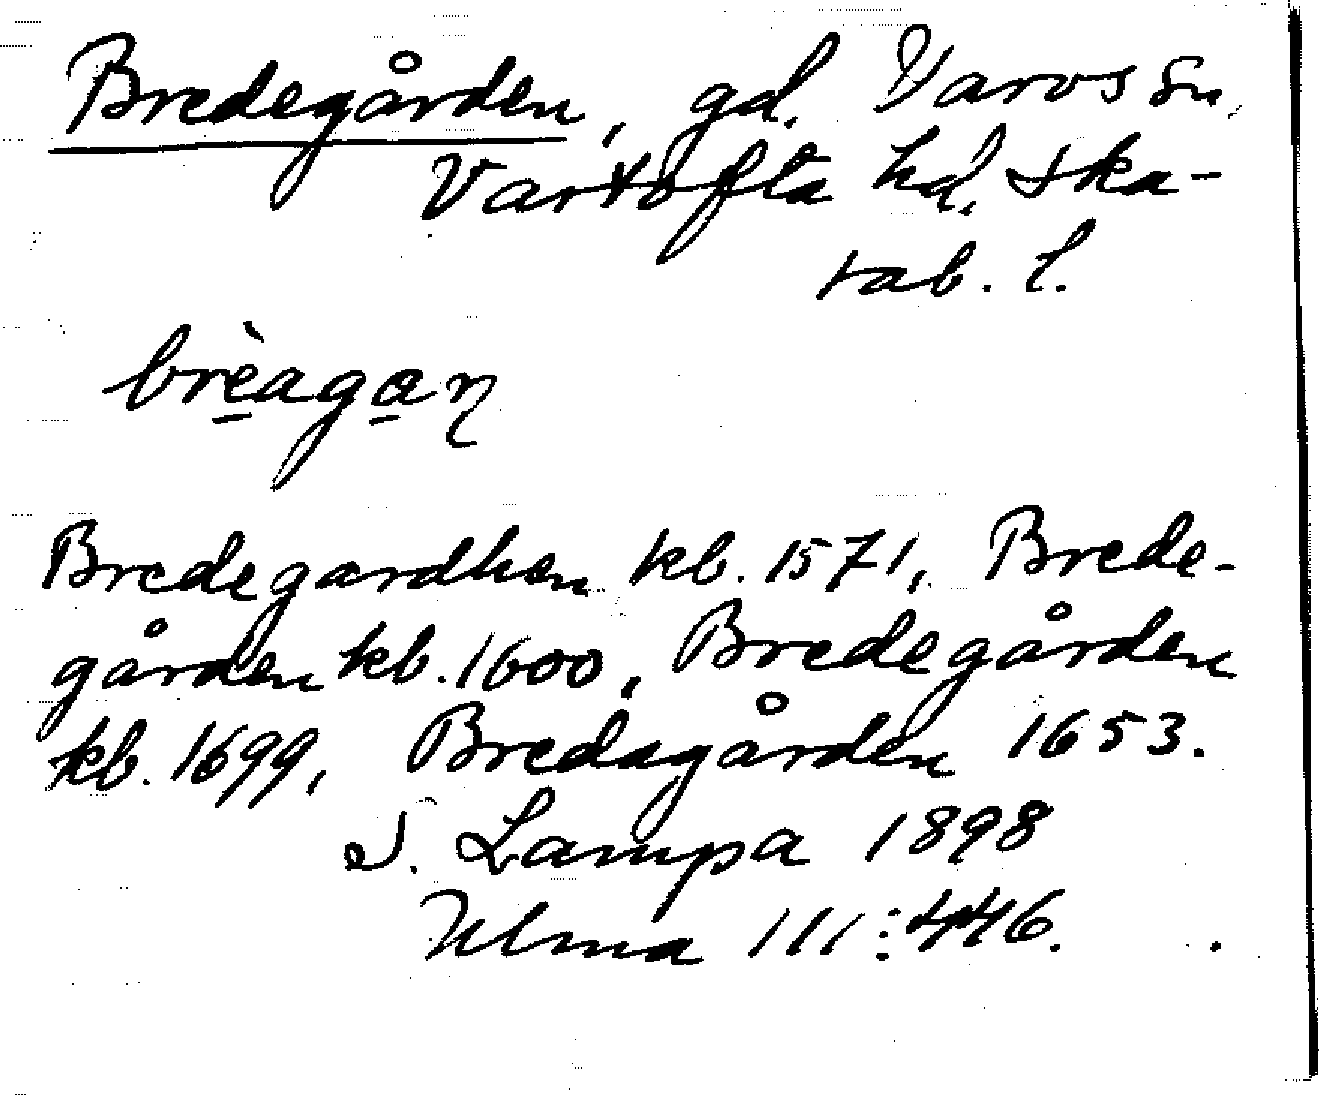 Bredegården, gd. Varvs sn.
Vartofta hd. Ska-
rab. l.
brè̱aga̱ṇ
Bredegardhen kb. 1571, Brede-
gården kb. 1600, Bredegården
kb. 1699, Bredagården 1653.
S. Lampa 1898
Ulma 111:446.